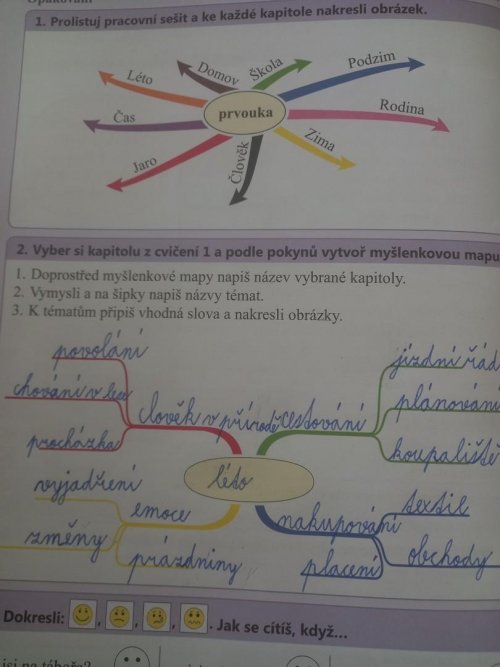 Opakování
1. Prolistuj pracovní sešit a ke každé kapitole nakresli obrázek.
Léto
Domov
Škola
Podzim
Čas
prvouka
Rodina
Jaro
Člověk
Zima
2. Vyber si kapitolu z cvičení 1 a podle pokynů vytvoř myšlenkovou mapu
1. Doprostřed myšlenkové mapy napiš název vybrané kapitoly.
2. Vymysli a na šipky napiš názvy témat.
3. K tématům připiš vhodná slova a nakresli obrázky.
povolání
chování v lese
procházka
člověk v přírodě
cestování
jízdní řád
plánování
koupaliště
léto
vyjadření
změny
emoce
prázdniny
nakupování
placení
textil
obchody
Dokresli: , , , . Jak se cítíš, když...
jsi na táboře?